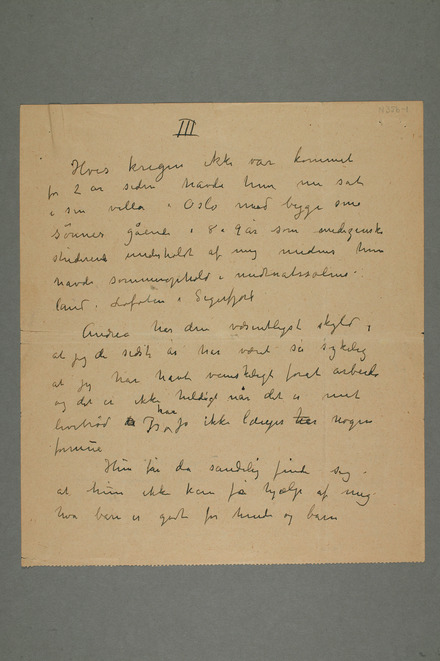 III
Hvis krigen ikke var kommet
for 2 år siden havde hun nu sat
i sin villa i Oslo med begge sine
sønner gående i 8 9 år som medizinske
studerende underholdt af mig medens hun
havde sommerophold i midnatssolens
land. Lofoten i
Andrea har den væsentligst skyld i
at jeg de sidste år har været så sygelig
at jeg har havt vanskeligt forat arbeide
og det er ikke heldigt når det er mit
levebrød har ikke længer nogen
formue
Hun får da sandelig finde sig i
at hun ikke kan få hjælp af mig
hva bare er godt for hende og barn